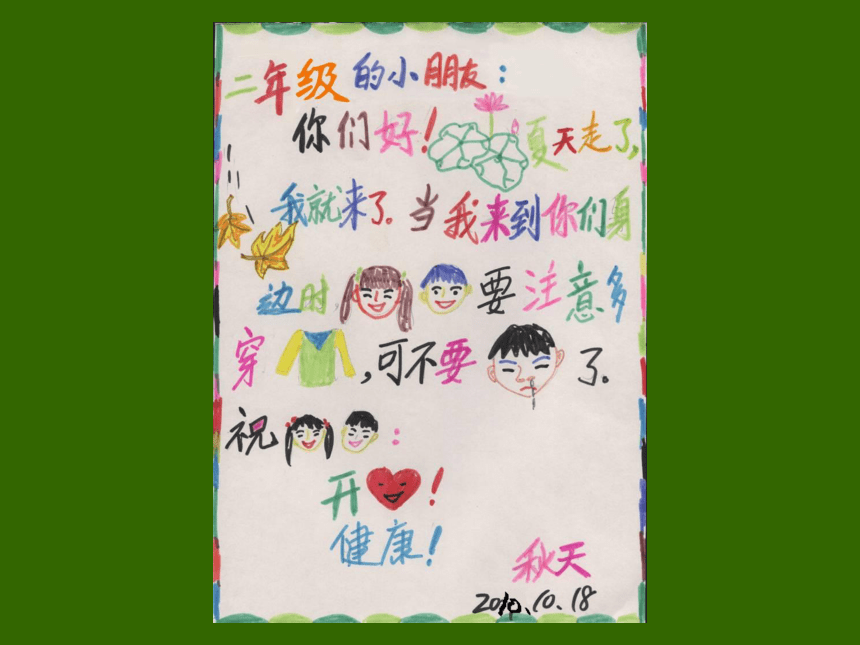 二年级的小朋友：
你们好！夏天走了，
我就来了。当我来到你们身
边时要注意多
穿，可不要了。
祝：
开！
健康！
秋天
2010.10.18